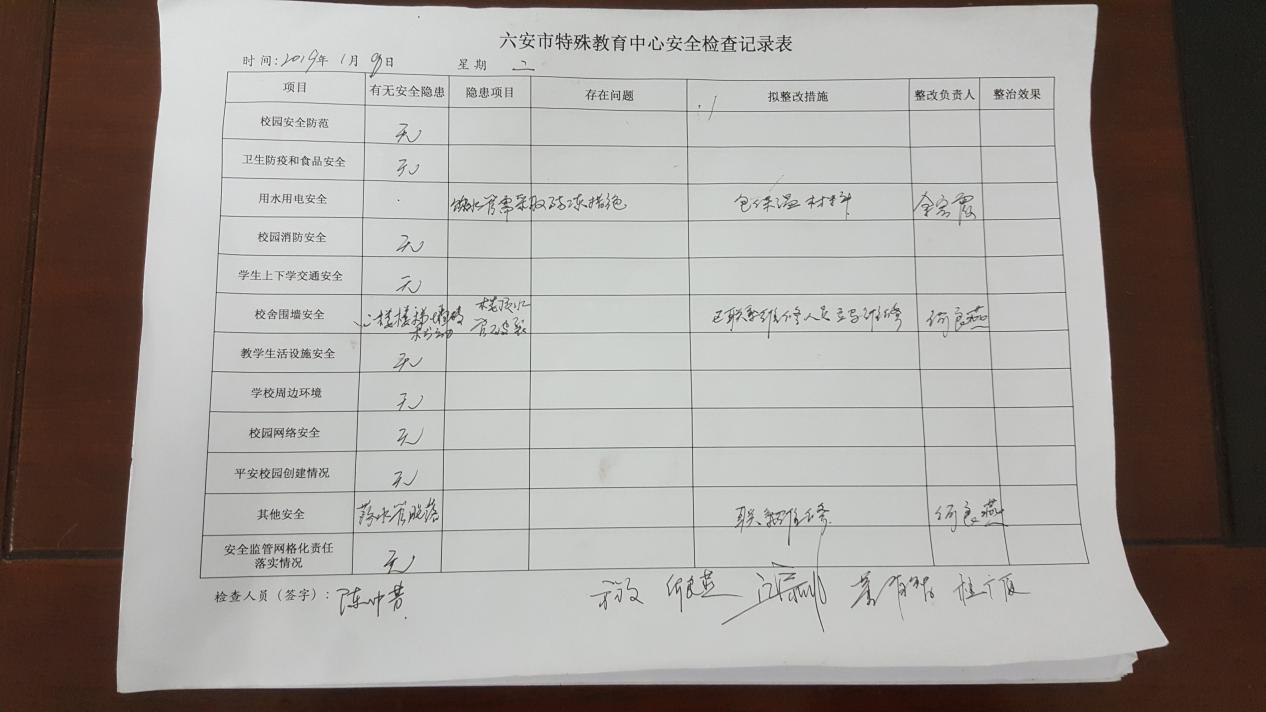 六安市特殊教育中心安全检查记录表
时间:2019年1月8日 星期 二
项目 有无安全隐患 隐患项目 存在问题 拟整改措施 整改负责人 整治效果
校园安全防范 无
卫生防疫和食品安全 无
用水用电安全 管需采取防冻措施 包保温材料
校园消防安全 无
学生上下学交通安全 无
校舍围墙安全 楼梯墙砖 楼顶水 已联系维修人员立马维修 何良燕
管破裂
教学生活设施安全 无
学校周边环境 无
校园网络安全 无
平安校园创建情况 无
其他安全 落水管脱落 联系维修 何良燕
安全监管网格化责任 无
落实情况
检查人员（签字）： 何良燕